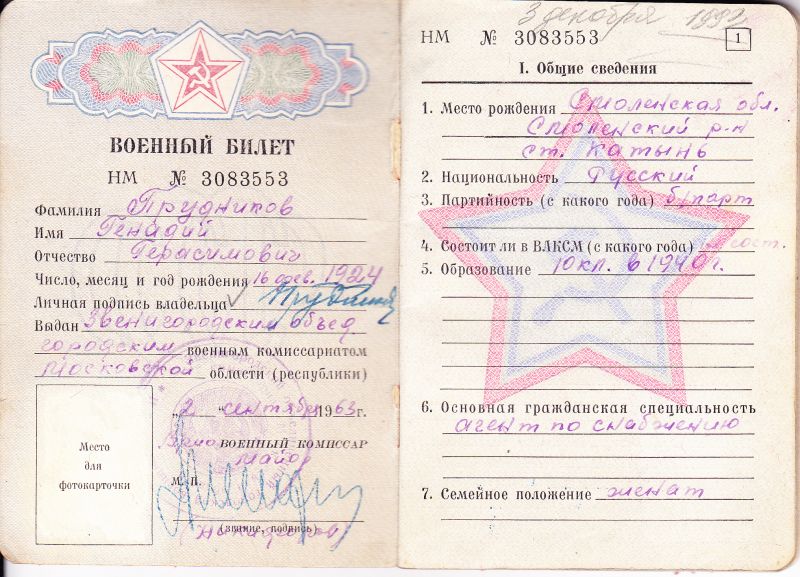 ВОЕННЫЙ БИЛЕТ
НМ № 3083553
Фамилия Прудников
Имя Генадий
Отчество Герасимович
Число, месяц и год рождения 16 фев. 1924
Личная подпись владельца
Выдан Звенигородским объед.
городским военным комиссариатом
Московской области (республики)
„2 “ сентября 1963 г.
ВОЕННЫЙ КОМИССАР
майор
М. П.
(звание, подпись)
Место
для
фотокарточки
3 декабря 1992
НМ № 3083553
1
I. Общие сведения
1. Место рождения Смоленская обл.
Смоленский р-н
ст. Катынь
2. Национальность Русский
3. Партийность (с какого года) б/парт
4. Состоит ли в ВЛКСМ (с какого года) сост.
5. Образование 10 кл. в 1940 г.
6. Основная гражданская специальность
агент по снабжению
7. Семейное положение женат